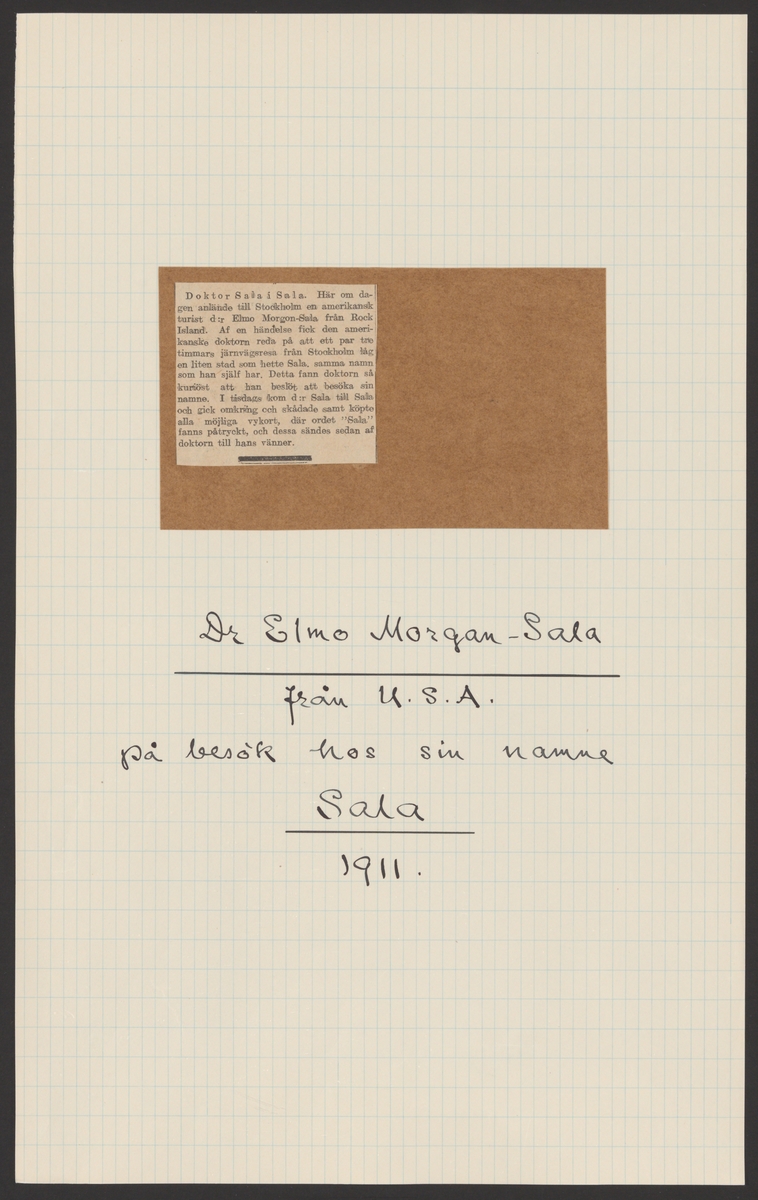 Doktor Sala i Sala. Här om da-
gen anlände till Stockholm en amerikansk
turist d:r Elmo Morgon-Sala från Rock
Island. Af en händelse fick den ameri-
kanske doktorn reda på att ett par tre
timmars järnvägsresa från Stockholm låg
en liten stad som hette Sala, samma namn
som han själf har. Detta fann doktorn så
kuriöst att han beslöt att besöka sin
namne. I tisdags kom d:r Sala till Sala
och gick omkring och skådade samt köpte
alla möjliga vykort, där ordet "Sala"
fanns påtryckt, och dessa sändes sedan af
doktorn till hans vänner.
Dr Elmo Morgan-Sala
från U.S.A.
på besök hos sin namne
Sala
1911.